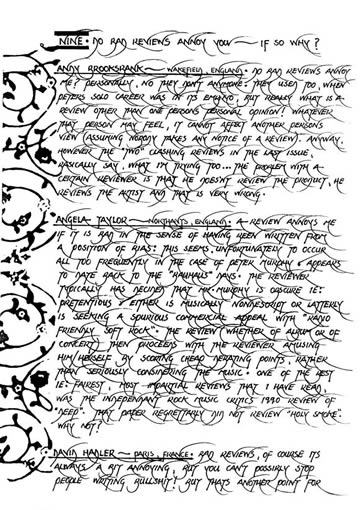 NINE • DO BAD REVIEWS ANNOY YOU — IF SO WHY?
ANDY BROOKSBANK — WAKEFIELD, ENGLAND • DO BAD REVIEWS ANNOY
ME? PERSONALLY, NO THEY DON'T ANYMORE. THEY USED TOO, WHEN
PETERS SOLO CAREER WAS IN ITS EMBRYO, BUT REALLY WHAT IS A
REVIEW OTHER THAN ONE PERSONS PERSONAL OPINION? WHATEVER
THAT PERSON MAY FEEL, IT CANNOT AFFECT ANOTHER PERSONS
VIEW (ASSUMING NOBODY TAKES ANY NOTICE OF A REVIEW). ANYWAY,
HOWEVER THE "TWO" CLASHING REVIEWS IN THE LAST ISSUE,
BASICALLY SAY, WHAT I'M TRYING TOO... THE PROBLEM WITH A
CERTAIN REVIEWER IS THAT HE DOESN'T REVIEW THE PRODUCT, HE
REVIEWS THE ARTIST AND THAT IS VERY WRONG.
ANGELA TAYLOR — NORTHANTS, ENGLAND • A REVIEW ANNOYS ME
IF IT IS BAD IN THE SENSE OF HAVING BEEN WRITTEN FROM
A POSITION OF BIAS: THIS SEEMS, UNFORTUNATELY TO OCCUR
ALL TOO FREQUENTLY IN THE CASE OF PETER MURPHY & APPEARS
TO DATE BACK TO THE "BAUHAUS" DAYS. THE REVIEWER
TYPICALLY HAS DECIDED THAT MR. MURPHY IS OBSCURE IE:
PRETENTIOUS & EITHER IS MUSICALLY NONDESCRIPT OR LATTERLY
IS SEEKING A SPURIOUS COMMERCIAL APPEAL WITH "RADIO
FRIENDLY SOFT ROCK". THE REVIEW (WHETHER OF ALBUM OR OF
CONCERT) THEN PROCEEDS WITH THE REVIEWER AMUSING
HIM/HERSELF BY SCORING CHEAP DEBATING POINTS, RATHER
THAN SERIOUSLY CONSIDERING THE MUSIC • ONE OF THE BEST
IE: FAIREST, MOST IMPARTIAL REVIEWS THAT I HAVE READ,
WAS THE INDEPENDANT ROCK MUSIC CRITICS 1990 REVIEW OF
"DEEP". THAT PAPER REGRETTABLY DID NOT REVIEW "HOLY SMOKE".
WHY NOT?
DAVID HADLER — PARIS, FRANCE • BAD REVIEWS, OF COURSE ITS
ALWAYS A BIT ANNOYING, BUT YOU CAN'T POSSIBLY STOP
PEOPLE WRITING BULLSHIT! BUT THATS ANOTHER POINT FOR